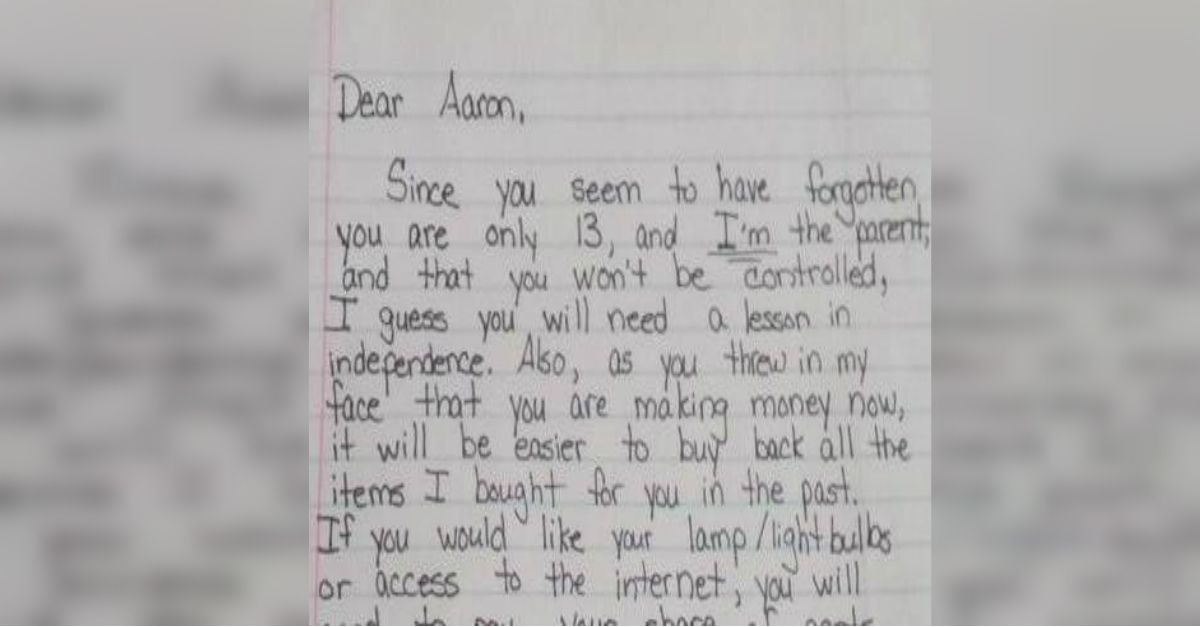 Dear Aaron,
Since you seem to have forgotten
you are only 13, and I'm the parent,
and that you won't be controlled,
I guess you will need a lesson in
independence. Also, as you threw in my
face that you are making money now,
it will be easier to buy back all the
items I bought for you in the past.
If you would like your lamp/lightbulbs
or access to the internet, you will
to pay your share of